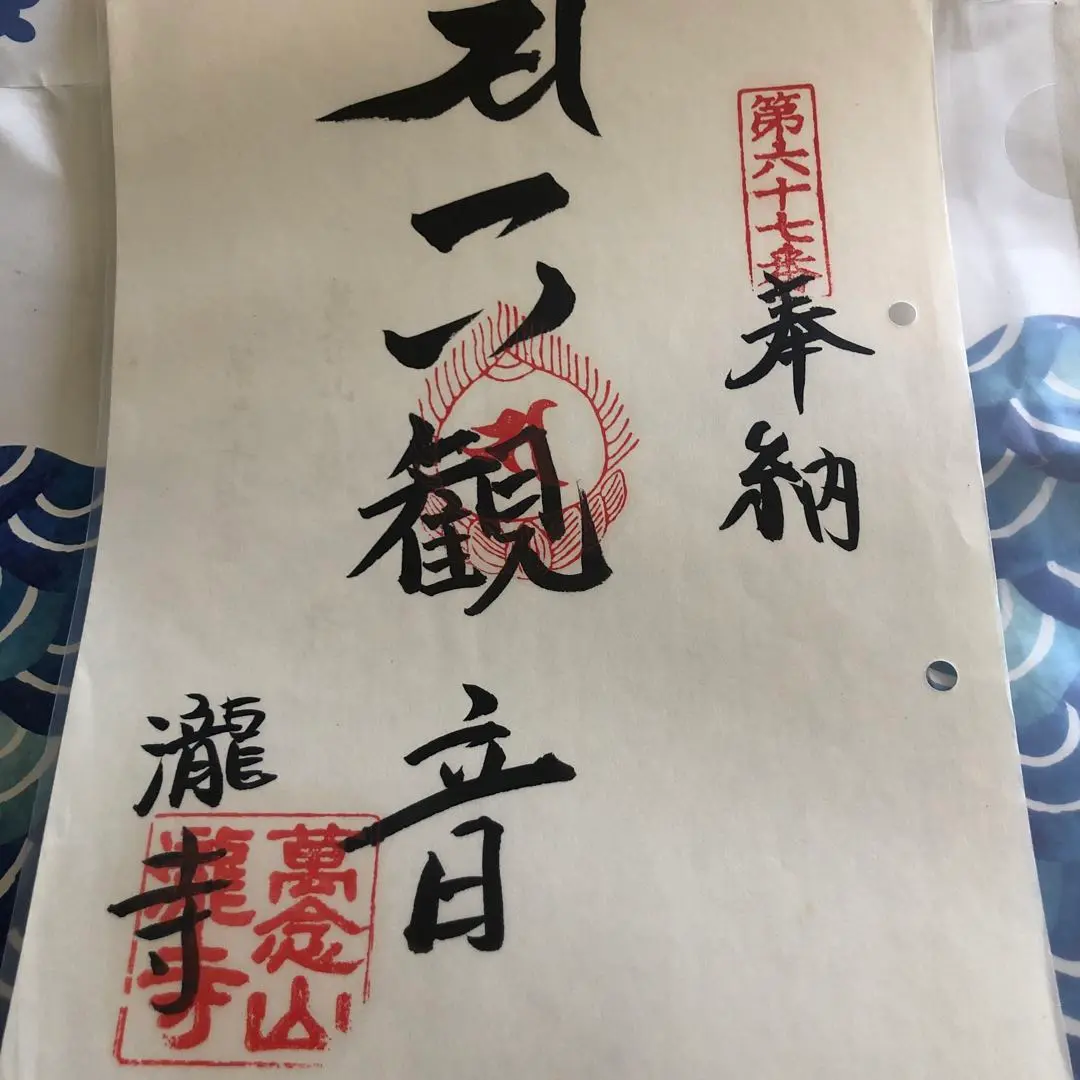 第六十七番
奉納
観音
瀧寺
萬念山
瀧寺